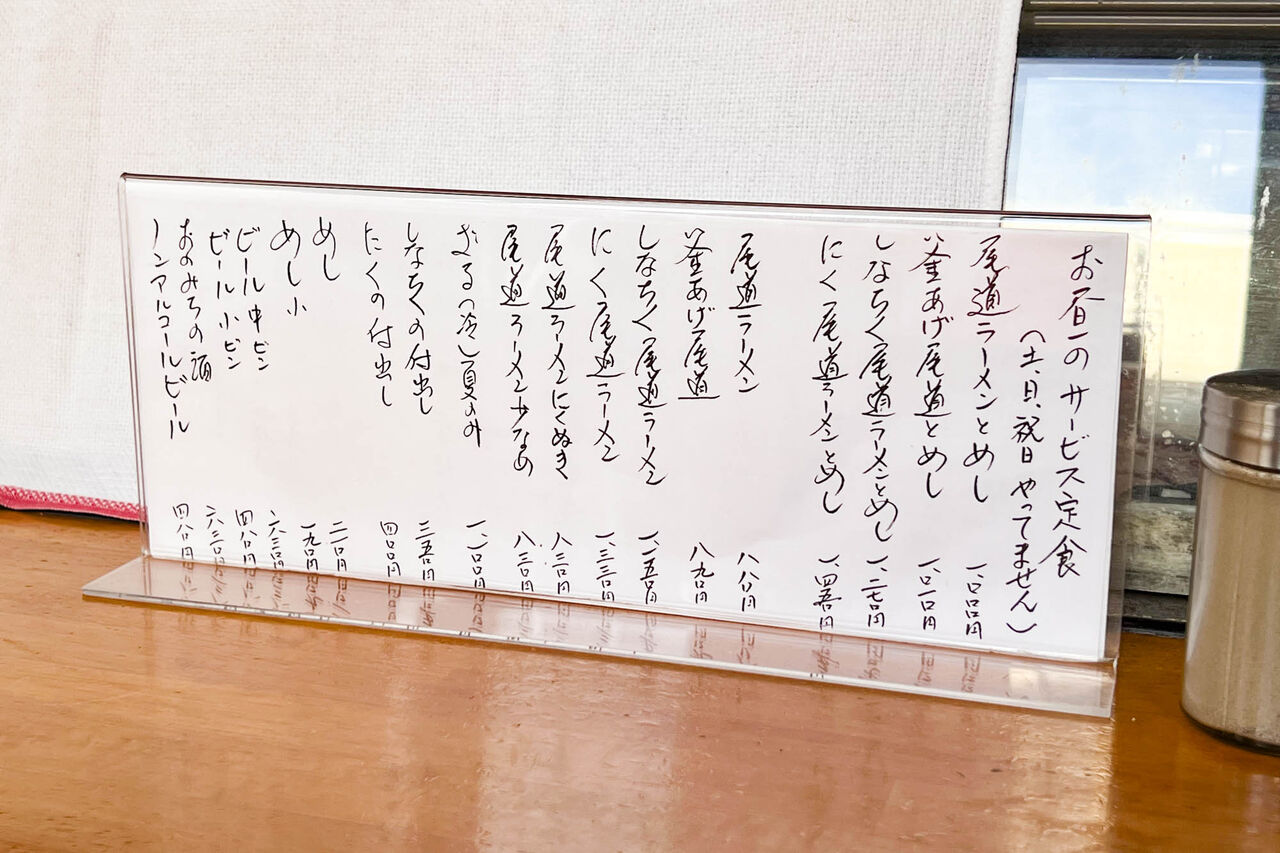 お昼のサービス定食
(土、日、祝日やってません)
尾道ラーメンとめし 一、〇〇〇円
釜あげ尾道とめし 一、〇一〇円
しなちく尾道ラーメンとめし 一、二七〇円
にく尾道ラーメンとめし 一、四五〇円
尾道ラーメン 八八〇円
釜あげ尾道 八九〇円
しなちく尾道ラーメン 一、一五〇円
にく尾道ラーメン 一、三三〇円
尾道ラーメンにくぬき 八三〇円
尾道ラーメン少なめ 八三〇円
ざる(冷し)夏のみ
しなちくの付出し 三五〇円
にくの付出し 四〇〇円
めし 二一〇円
めし小 一九〇円
ビール中ビン 六三〇円
ビール小ビン 四八〇円
おのみちの酒 六三〇円
ノンアルコールビール 四八〇円